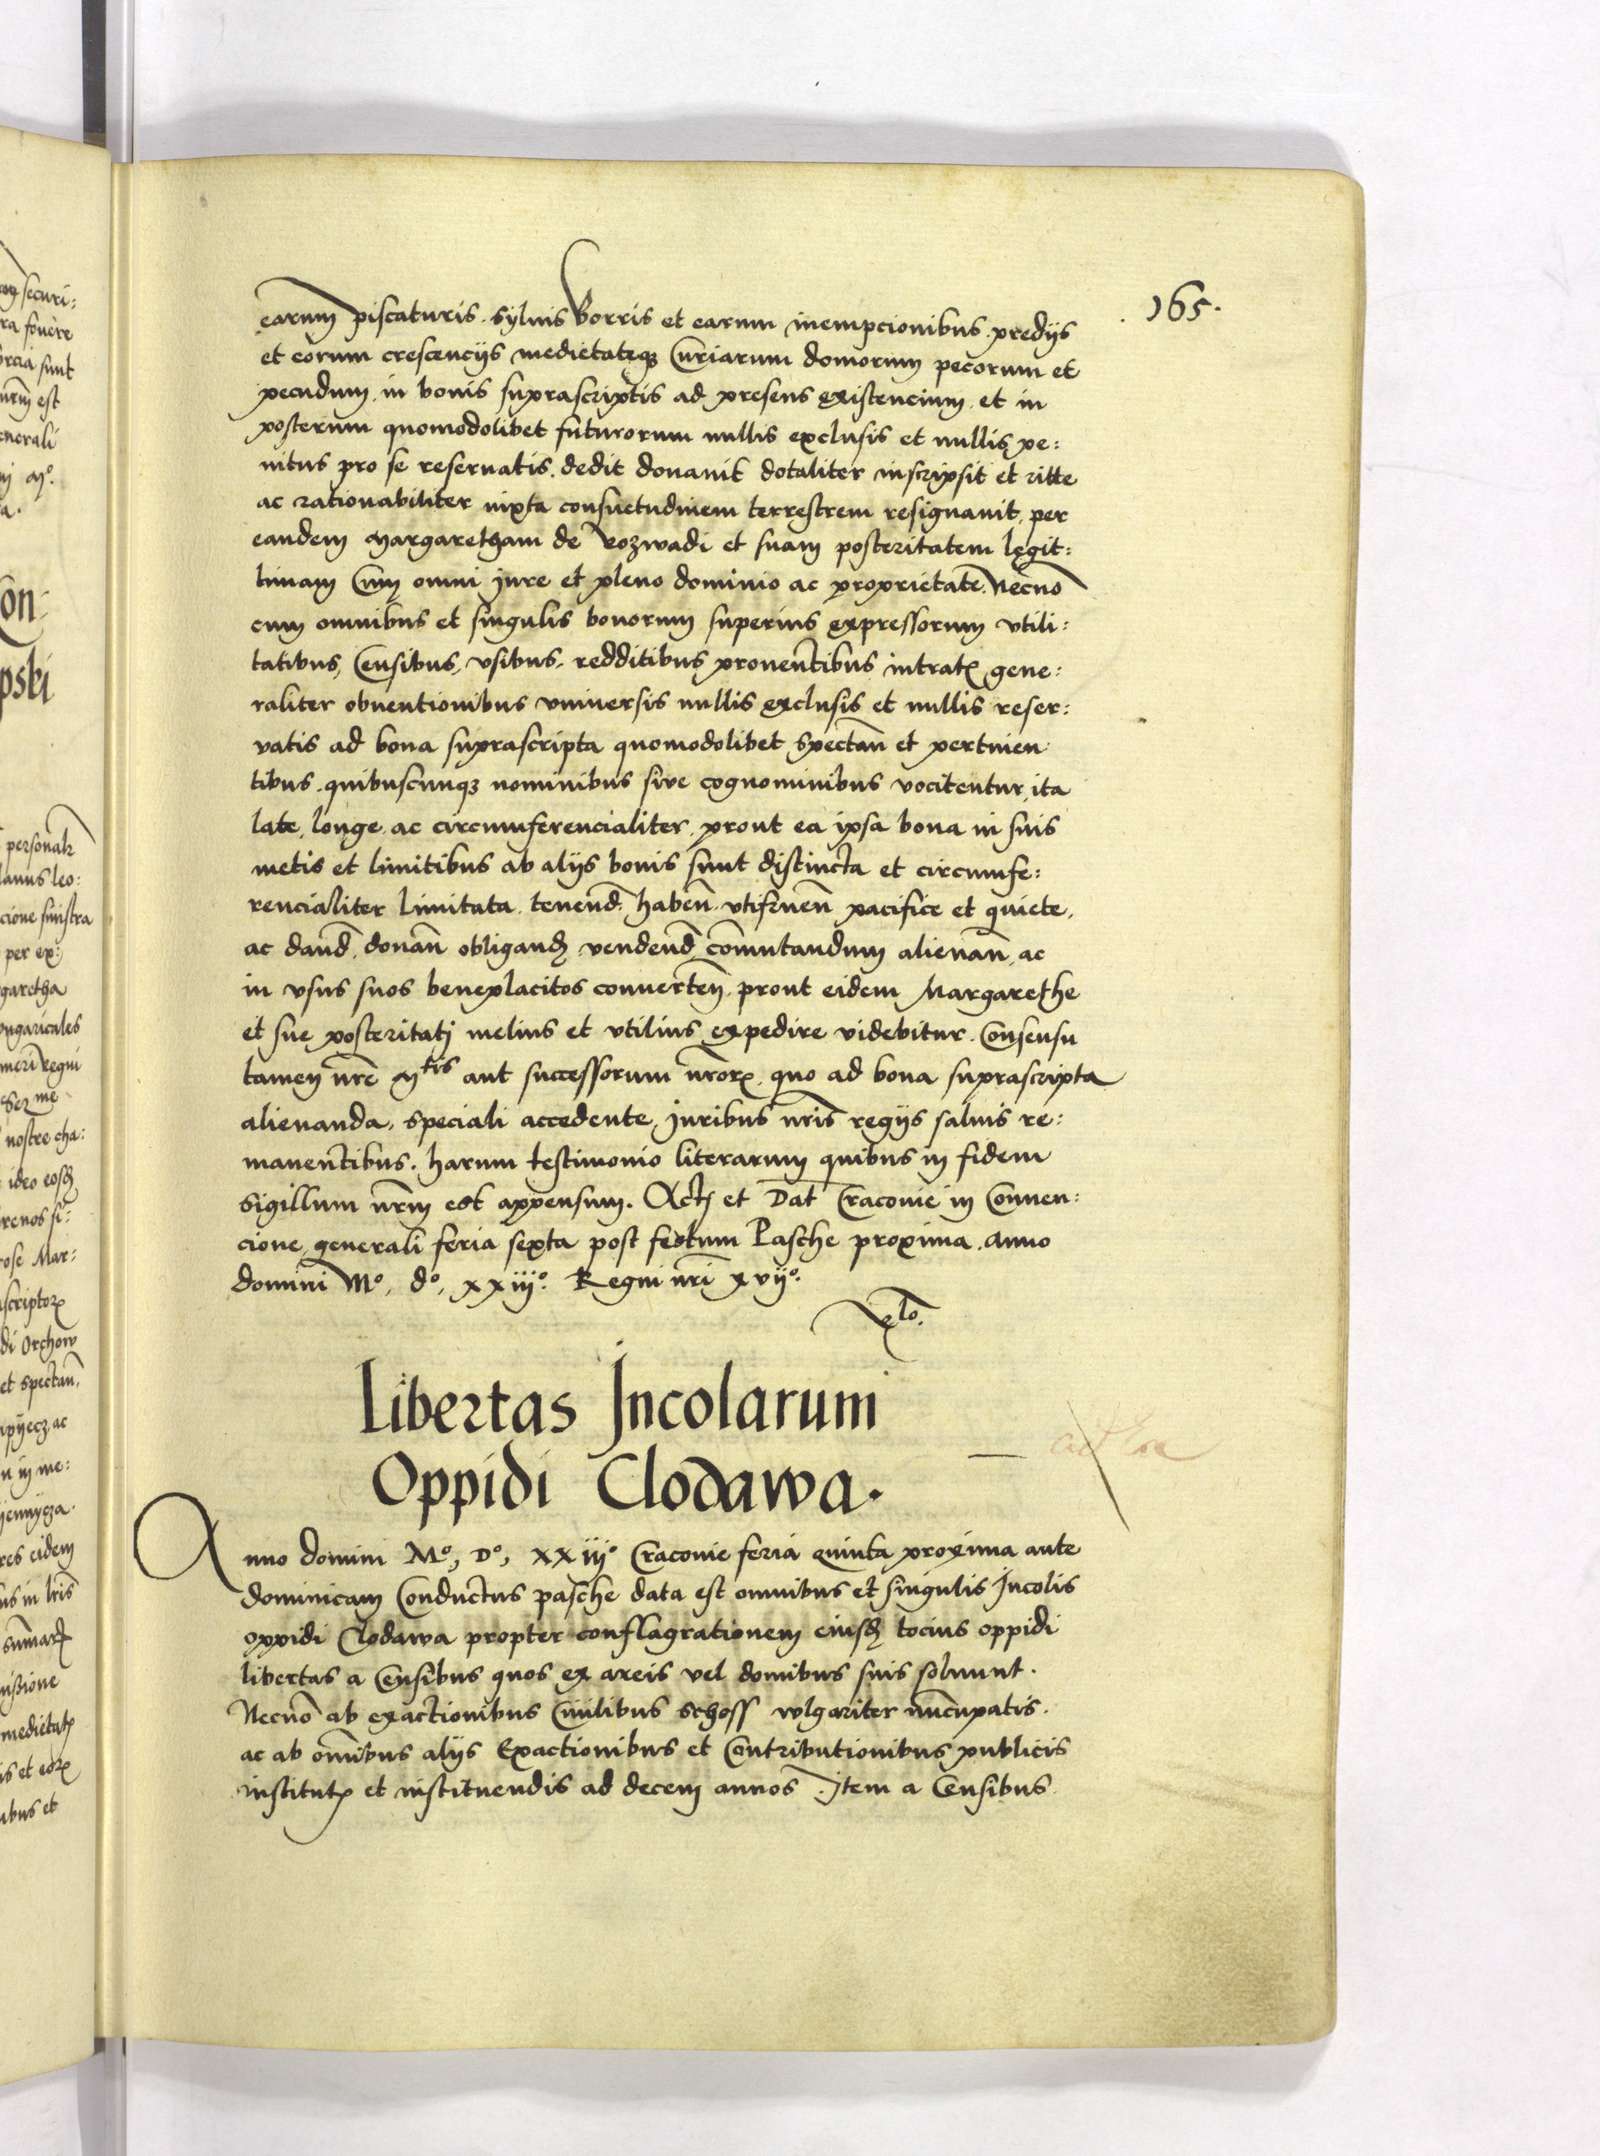 165.
earum piscaturis. syluis Borris et earum inempcionibus. predijs
et eorum crescencijs medietateqʒ Curiarum domorum pecorum et
pecudum. in bonis suprascriptis ad presens existencium. et in
posterum quomodolibet futurorum nullis exclusis et nullis pe:
nitus pro se reseruatis. dedit donauit dotaliter inscripsit et ritte
ac rationabiliter iuxta consuetudinem terrestrem resignauit. per
eandem Margaretham de Rozwadi et suam posteritatem legit:
timam Cum omni jure et pleno dominio ac proprietate. Necnō
cum omnibus et singulis bonorum superius expressorum vtili:
tatibus, Censibus, vsibus, redditibus prouentibus intratꝭ gene:
raliter obuentionibus vniuersis nullis exclusis et nullis reser:
vatis ad bona suprascripta quomodolibet spectan̄ et pertinen
tibus. quibuscunqʒ nominibus siue cognominibus vocitentur, ita
late, longe, ac circumferencialiter, prout ea ipsa bona in suis
metis et limitibus ab alijs bonis sunt distincta et circumfe:
rencialiter limitata. tenend̄. haben̄. vtifruen̄ pacifice et quiete,
ac dand̄, donan̄ obligand̄ vendend̄ com̄utandum alienan̄, ac
in vsus suos beneplacitos conuerten̄. prout eidem Margarethe
et sue posteritatj melius et vtilius expedire videbitur. Consensu
tamen nr̄e Mtis aut successorum nr̄orꝝ, quo ad bona suprascripta
alienanda, speciali accedente, Juribus nr̄is regijs saluis re:
manentibus. harum testimonio literarum quibus in fidem
Sigillum nr̄m est appensum. Actꝭ et Dat̄ Cracouie in Conuen:
cione generali feria sexta post festum Pasche proxima. Anno
domini Mº, dº, xxiijº. Regni nr̄i xvijº.
Libertas Jncolarum
Oppidi Clodawa.
Anno domini Mº, Dº, XXiijº Cracouie feria quinta proxima ante
dominicam Conductus pasche data est omnibus et singulis Jncolis
oppidi Clodawa propter conflagrationem eiusd̄ tocius oppidi
libertas a Censibus quos ex areis vel domibus suis soluunt.
Necnō ab exactionibus Ciuilibus schoss vulgariter nūcupatis.
ac ab om̄ibus alijs Exactionibus et Contributionibus publicis
institutꝭ et instituendis ad decem annos. Jtem a Censibus